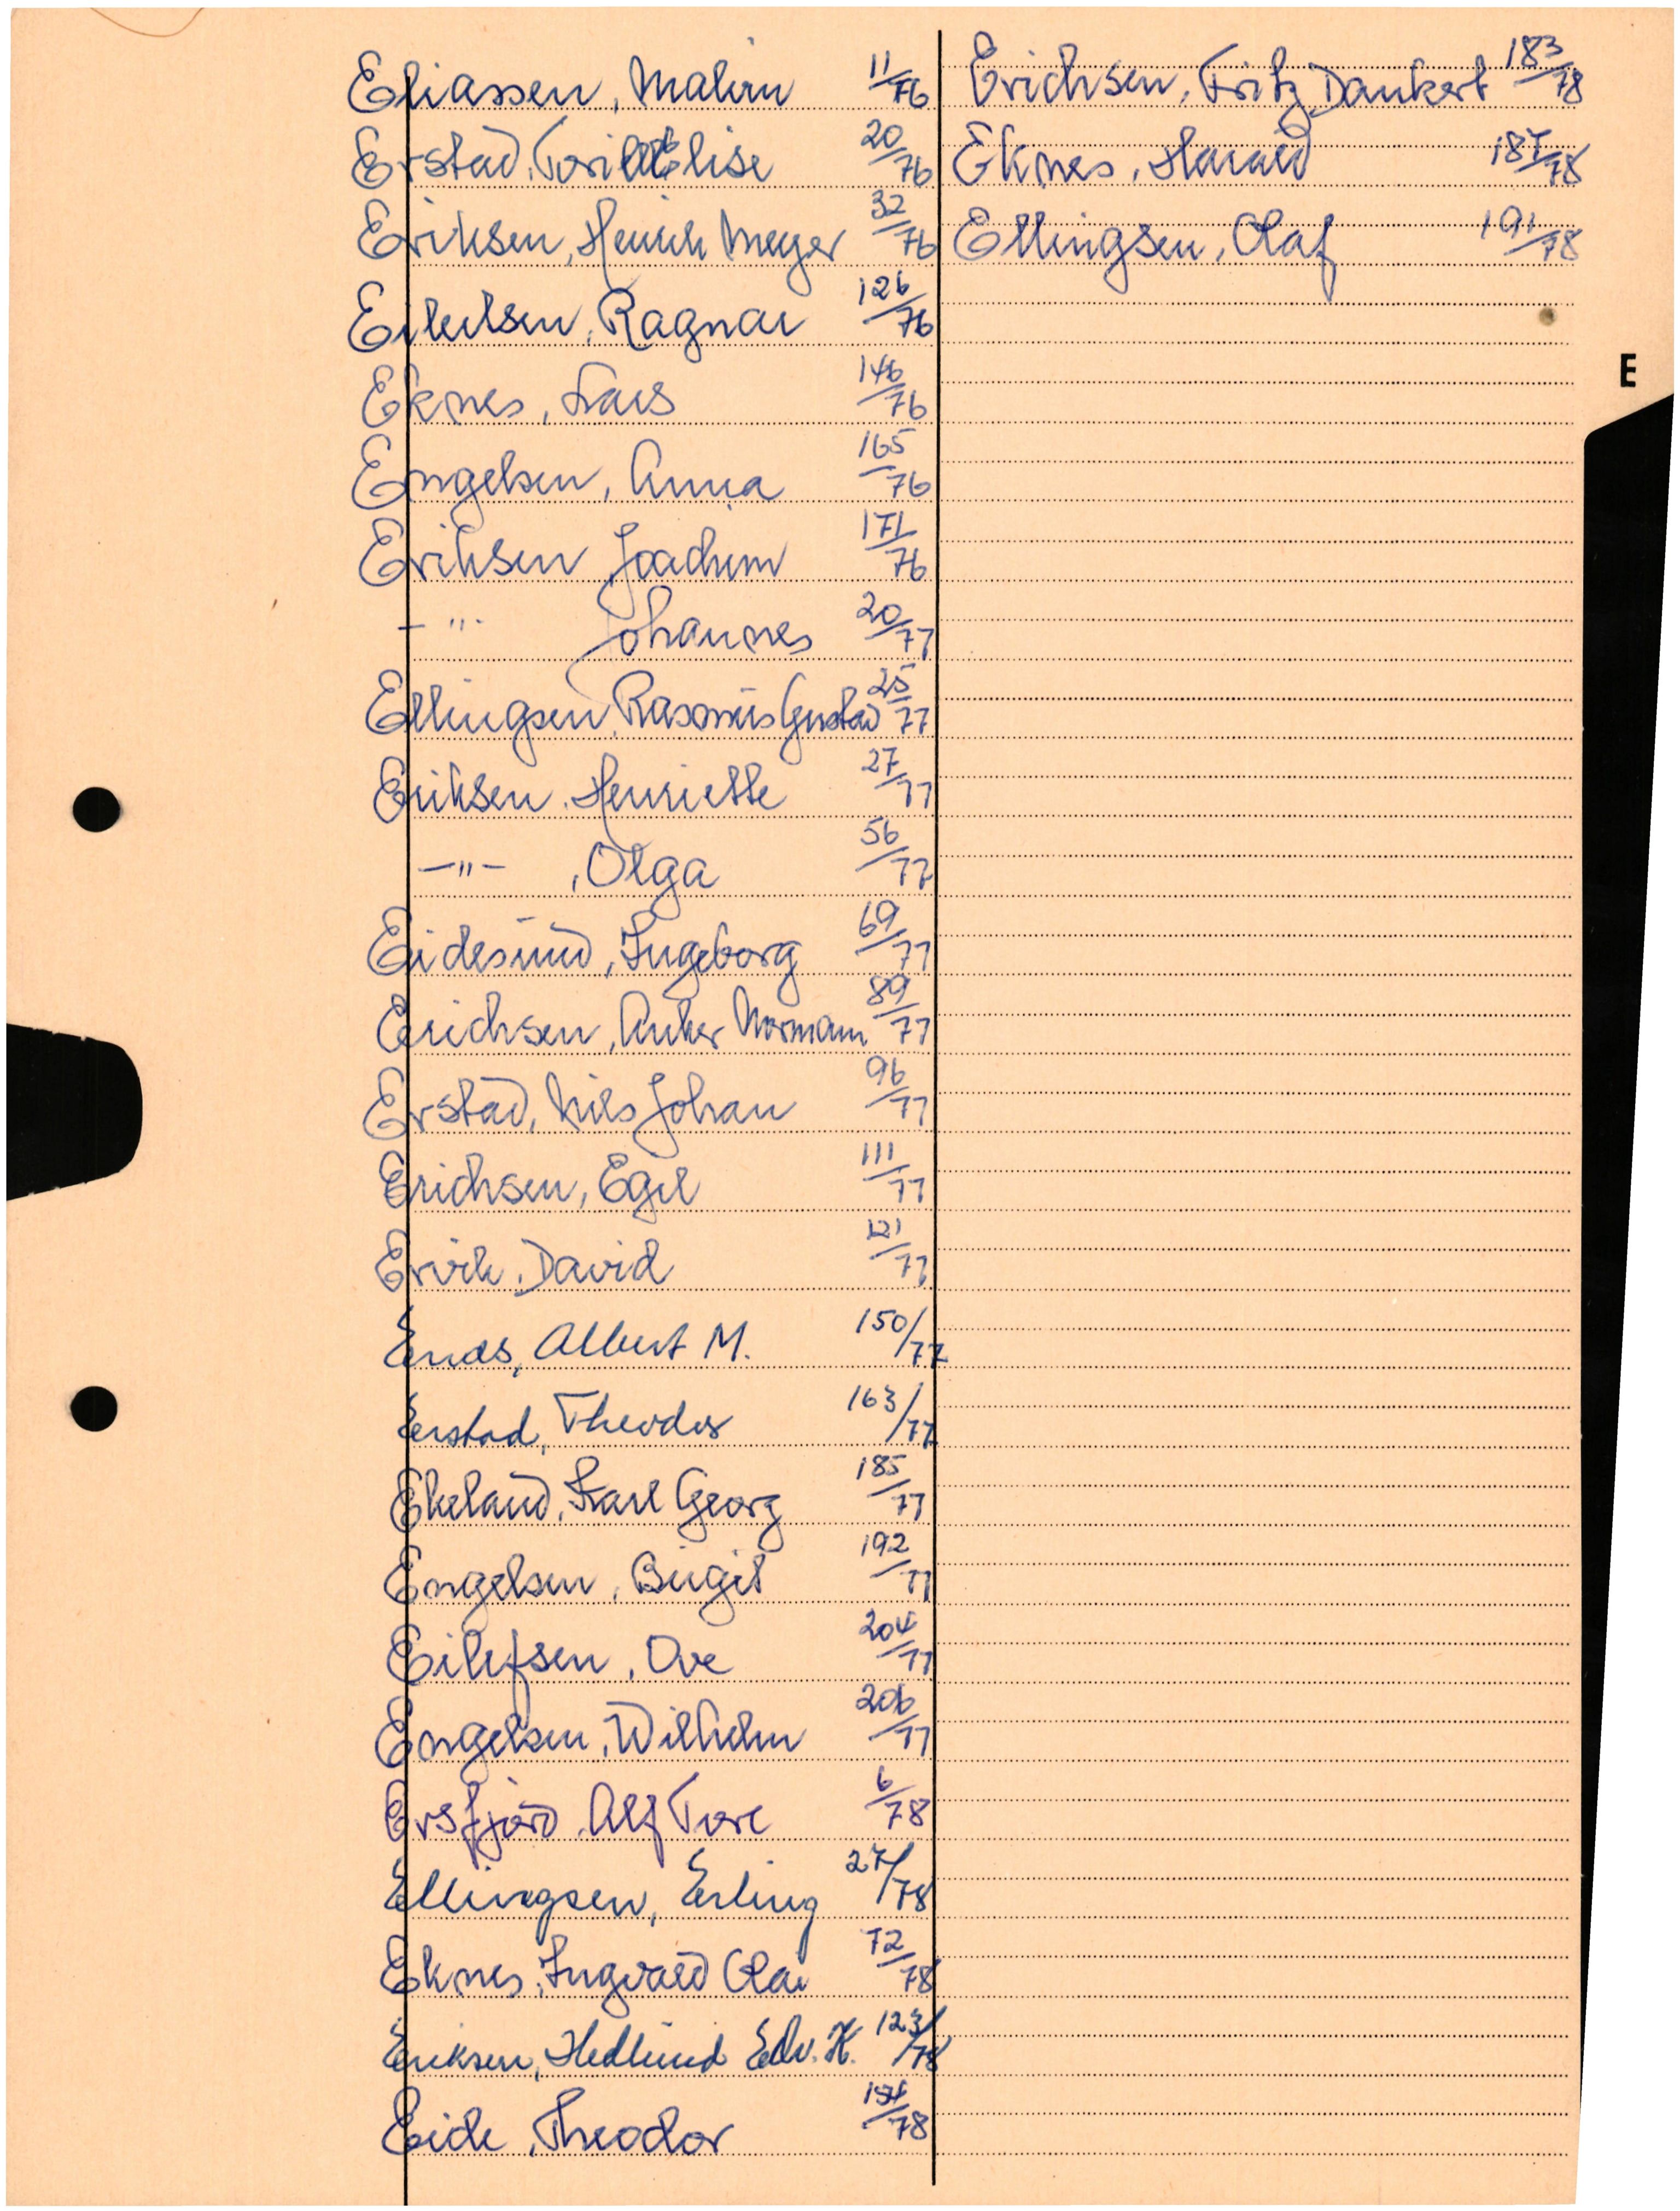 Eliassen, Malim 11/76
Erstad, Torill Elise 20/76
Eriksen, Henrik Meyer 32/76
Eilertsen, Ragnar 126/76
Eknes, Lars 146/76
Engelsen, Anna 165/76
Eriksen Joachim 171/76
- " - Johannes 20/77
Ellingsen, Rasmus Gustav 25/77
Eriksen, Henriette 27/77
- " - , Olga 56/77
Eidesund, Ingeborg 69/77
Erichsen, Anker Normann 89/77
Erstad, Nils Johan 96/77
Erichsen, Egil 111/77
Ervik, David 121/77
Enas, Albert M. 150/77
Erstad, Theodor 163/77
Ekeland, Karl Georg 185/77
Engelsen, Birgit 192/77
Eilefsen, Ove 204/77
Engelsen, Wilhelm 206/77
Ersfjord, Alf Tore 6/78
Ellingsen, Erling 27/78
Eknes, Ingvald Olai 72/78
Eriksen, Hedlund Edv. K. 123/78
Eide, Theodor /78
Erichsen, Fritz Dankert 183/78
Eknes, Harald 187/78
Ellingsen, Olaf 191/78
E